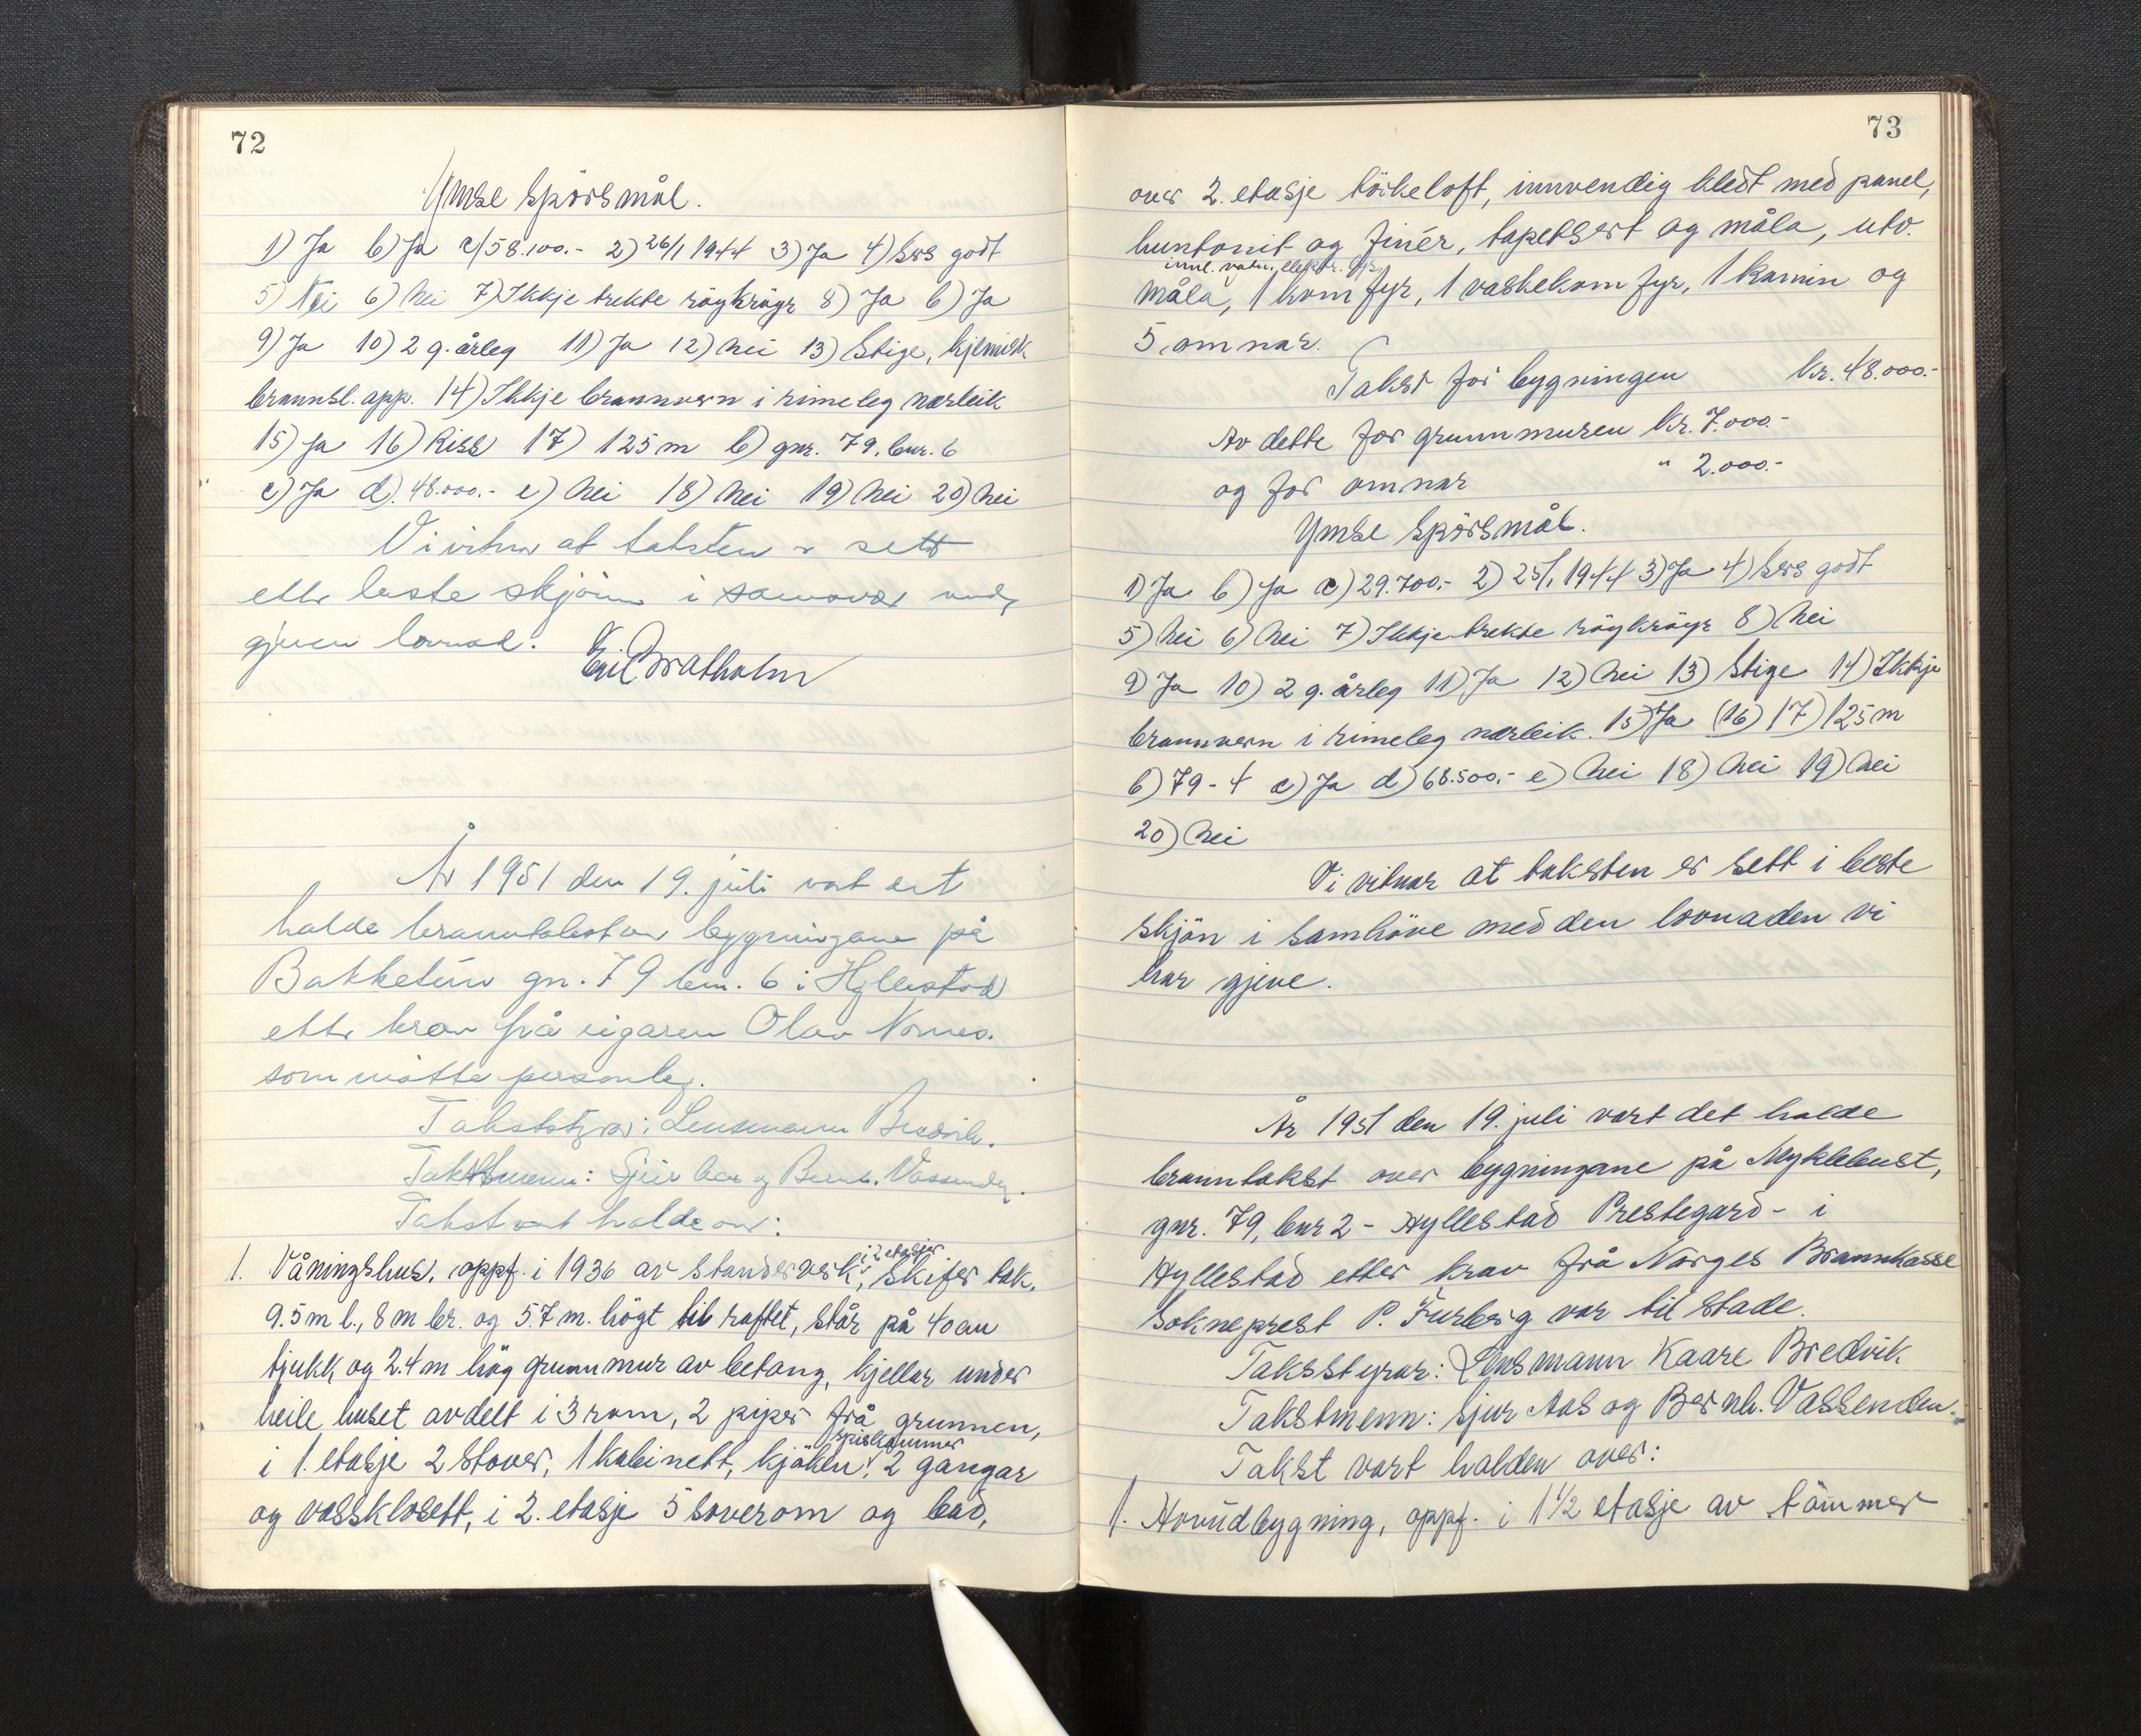 72
Ymse Spörsmål.
1) Ja b) Ja c) 58.100.- 2) 26/1 1944 3) Ja 4) Svs godt
5) Nei 6) Nei 7) Ikkje trekte röykröyr 8) Ja b) Ja
9) Ja 10) 2 g. årleg 11) Ja 12) Nei 13) Stige, kjemisk
brannsl. app. 14) Ikkje brannvern i rimeleg nærleik
15) Ja 16) Riss 17) 125 m b) gnr. 79, bnr. 6
c) Ja d) 48.000.- e) Nei 18) Nei 19) Nei 20) Nei
Vi vitnar at taksten er sett
etter beste skjönn i samsvar med
gjeven lovnad.
År 1951 den 19. juli vart det
halde branntakst over bygningane på
Bakketun gn. 79 bnr. 6 i Hyllestad
etter krav frå eigaren Olav Nornes.
som møtte personleg.
Takststyrar: Lensmann Bredvik.
Takstmenn: Sjur Aas og Bernh. Vassenden.
Takst vart halde over:
1. Våningshus, oppf. i 1936 av standerverk, i 2 etasjer, Skifer tak,
9.5 m l., 8 m br. og 5.7 m. högt til raftet, står på 40 cm
tjukk og 2.4 m hög grunnmur av betong, kjellar under
heile huset avdelt i 3 rom, 2 piper frå grunnen,
i 1. etasje 2 stover, 1 kabinett, kjöken, spiskammer 2 gangar
og vassklosett, i 2. etasje 5 soverom og bad,
73
over 2. etasje törkeloft, innvendig kledt med panel,
huntonit og finér, tapetsert og måla, utv.
innl. vatn, elektr. lys,
måla, 1 komfyr, 1 vaskekomfyr, 1 kamin og
5 omnar.
Takst for bygningen kr. 48.000.-
Av dette for grunnmuren kr. 7.000.-
og for omnar " 2.000.-
Ymse Spörsmål.
1) Ja b) Ja c) 29.700.- 2) 25/1 1944 3) Ja 4) Svs godt
5) Nei 6) Nei 7) Ikkje trekte röykröyr 8) Nei
9) Ja 10) 2 g. årleg 11) Ja 12) Nei 13) Stige 14) Ikkje
brannvern i rimeleg nærleik. 15) Ja (16) 17) 125 m
b) 79 - 4 c) Ja d) 68.500.- e) Nei 18) Nei 19) Nei
20) Nei
Vi vitnar at taksten er sett i beste
skjön i samhöve med den lovnaden vi
har gjeve.
År 1951 den 19. juli vart det halde
branntakst over bygningane på Myklebust,
gnr. 79, bnr 2 - Hyllestad Prestegard - i
Hyllestad etter krav frå Norges Brannkasse
Sokneprest P. Furberg var til stade.
Taksstyrar: Lensmann Kaare Bredvik
Takstmenn: Sjur Aas og Bernh. Vassenden.
Takst vart halden over:
1. Hovudbygning, oppf. i 1 1/2 etasje av tömmer